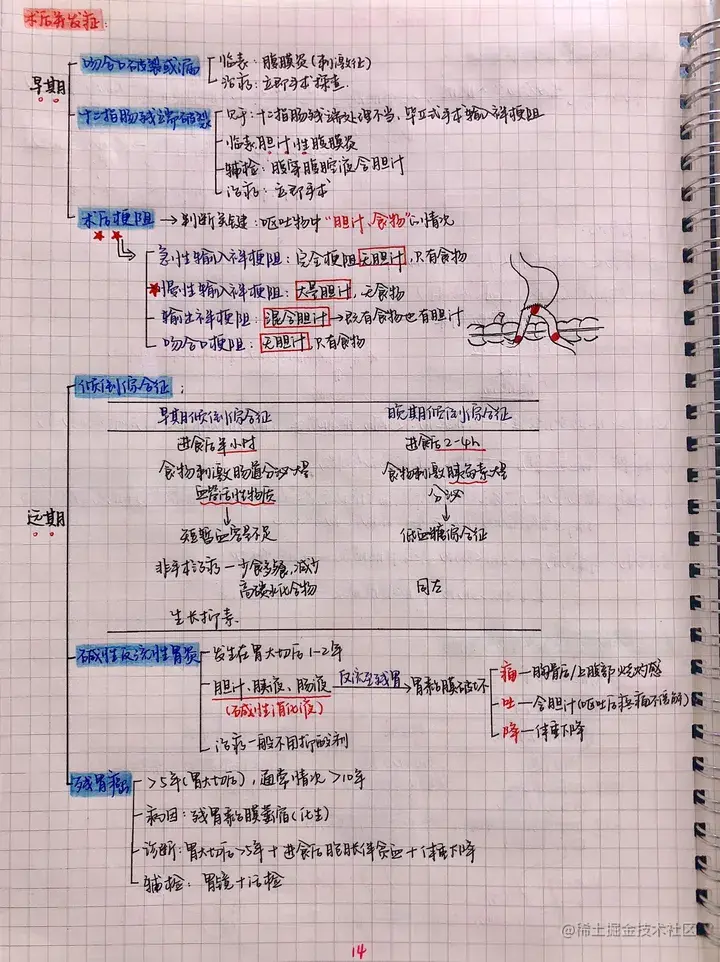 术后并发症:
早期
吻合口破裂或漏
临表: 腹膜炎(刺激征)
治疗: 立即手术探查.
十二指肠残端破裂
见于: 十二指肠残端处理不当、毕Ⅱ式手术输入袢梗阻
临表: 胆汁性腹膜炎
辅检: 腹穿腹腔液含胆汁
治疗: 立即手术
术后梗阻 → 判断关键: 呕吐物中"胆汁、食物"的情况
急性输入袢梗阻: 完全梗阻无胆汁, 只有食物
慢性输入袢梗阻: 大量胆汁, 无食物
输出袢梗阻: 混合胆汁 → 既有食物也有胆汁
吻合口梗阻: 无胆汁, 只有食物
远期
倾倒综合征:
早期倾倒综合征 晚期倾倒综合征
进食后半小时 进食后2-4h
食物刺激肠道分泌大量 食物刺激胰岛素大量
血管活性物质 分泌
↓ ↓
短暂血容量不足 低血糖综合征
非手术治疗—少食多餐, 减少
高碳水化合物 同左
生长抑素.
碱性反流性胃炎
发生在胃大切后1-2年
胆汁、胰液、肠液 反流至残胃 → 胃黏膜破坏
(碱性消化液)
痛—胸骨后/上腹部烧灼感
吐—含胆汁(呕吐后疼痛不缓解)
降—体重下降
治疗一般不用抑酸剂
残胃癌
>5年(胃大切后), 通常情况>10年
病因: 残胃黏膜萎缩(化生)
诊断: 胃大切后>5年+进食后饱胀伴贫血+体重下降
辅检: 胃镜+活检
14
@稀土掘金技术社区